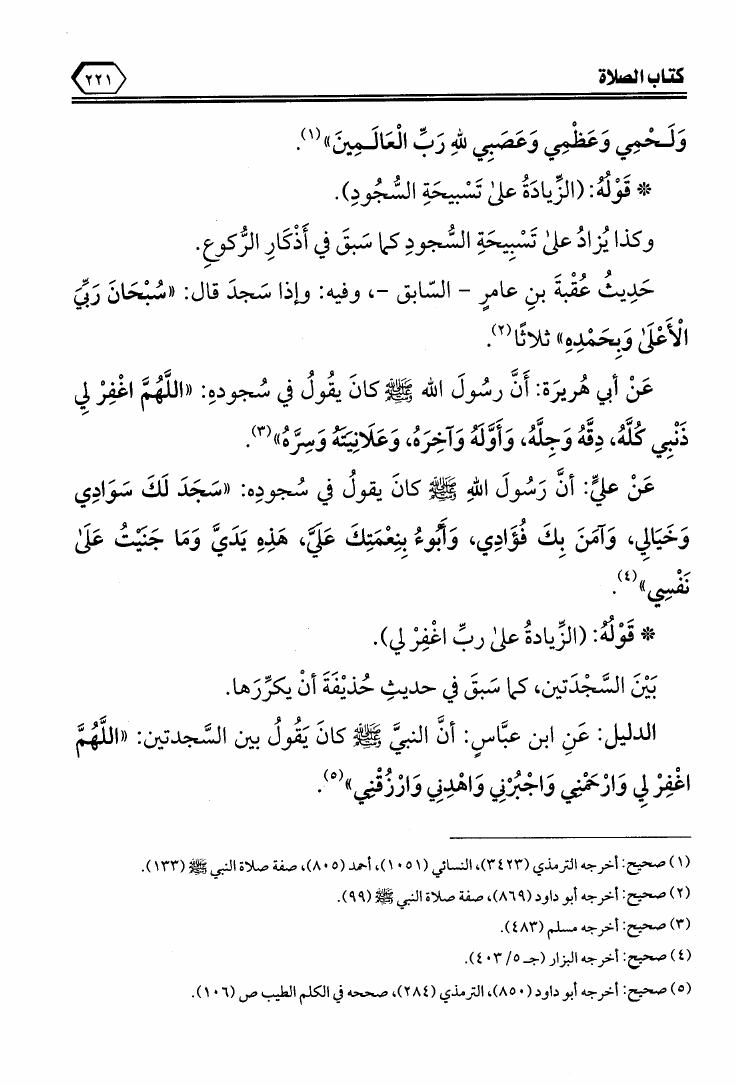 كتاب الصلاة ٢٢١
وَلَـحْمِي وَعَظْمِي وَعَصَبِي للهِ رَبِّ الْعَالَـمِينَ»(١).
* قَوْلُهُ: (الزِّيادَةُ علىٰ تَسْبِيحَةِ السُّجُودِ).
وكذا يُزادُ علىٰ تَسْبِيحَةِ السُّجودِ كما سَبَقَ في أَذْكَارِ الرُّكوعِ.
حَدِيثُ عُقْبَةَ بنِ عامرٍ – السّابق –، وفيه: وإذا سَجدَ قال: «سُبْحَانَ رَبِّيَ
الْأَعْلَىٰ وَبِحَمْدِهِ» ثلاثًا(٢).
عَنْ أبي هُريرَة: أَنَّ رسُولَ الله ﷺ كانَ يقُولُ في سُجودِهِ: «اللَّهُمَّ اغْفِرْ لِي
ذَنْبِي كُلَّهُ، دِقَّهُ وَجِلَّهُ، وَأَوَّلَهُ وَآخِرَهُ، وَعَلَانِيَتَهُ وَسِرَّهُ»(٣).
عَنْ عليٍّ: أنَّ رَسُولَ اللهِ ﷺ كانَ يقولُ في سُجودِه: «سَجَدَ لَكَ سَوَادِي
وَخَيَالِي، وَآمَنَ بِكَ فُؤَادِي، وَأَبُوءُ بِنِعْمَتِكَ عَلَيَّ، هَذِهِ يَدَيَّ وَمَا جَنَيْتُ عَلَىٰ
نَفْسِي»(٤).
* قَوْلُهُ: (الزِّيادةُ علىٰ ربِّ اغْفِرْ لي).
بَيْنَ السَّجْدَتين، كما سَبَقَ في حديثِ حُذيفَةَ أنْ يكرِّرَها.
الدليل: عَنِ ابن عبَّاسٍ: أنَّ النبيَّ ﷺ كانَ يَقُولُ بين السجدتين: «اللَّهُمَّ
اغْفِرْ لِي وَارْحَمْنِي وَاجْبُرْنِي وَاهْدِنِي وَارْزُقْنِي»(٥).
(١) صحيح: أخرجه الترمذي (٣٤٢٣)، النسائي (١٠٥١)، أحمد (٨٠٥)، صفة صلاة النبي ﷺ (١٣٣).
(٢) صحيح: أخرجه أبو داود (٨٦٩)، صفة صلاة النبي ﷺ (٩٩).
(٣) صحيح: أخرجه مسلم (٤٨٣).
(٤) صحيح: أخرجه البزار (جـ ٥/ ٤٠٣).
(٥) صحيح: أخرجه أبو داود (٨٥٠)، الترمذي (٢٨٤)، صححه في الكلم الطيب ص (١٠٦).